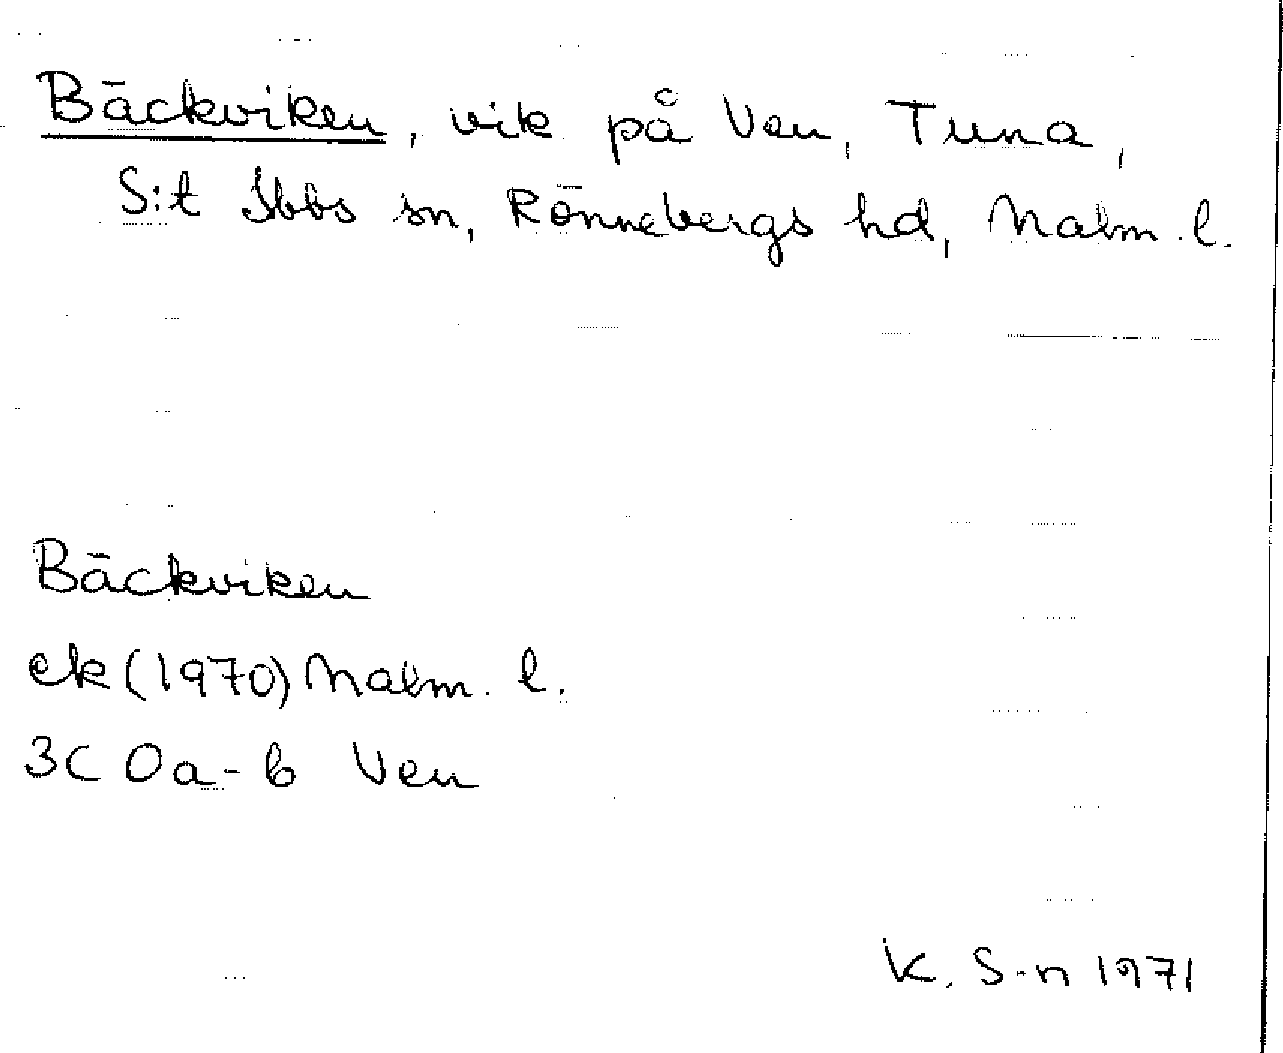 Bäckviken, vik på Ven, Tuna,
S:t Ibbs sn, Rönnebergs hd, Malm. l.
Bäckviken
ek (1970) Malm. l.
3C 0a-b Ven
K. S-n 1971